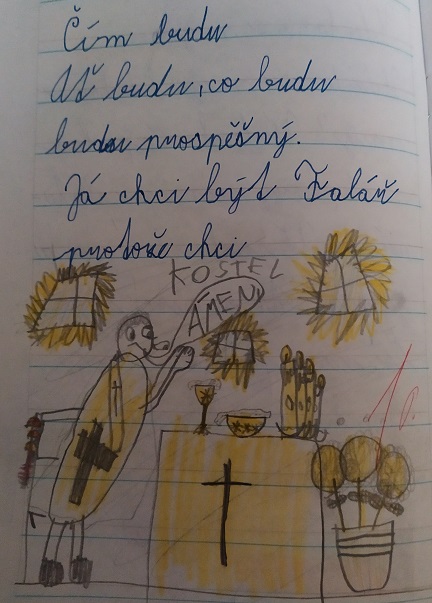 Čím budu
Ať budu, co budu
budu prospěšný.
Já chci být Falář
protože chci
KOSTEL
AMEN